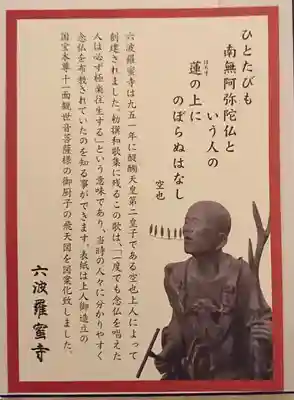 ひとたびも
南無阿弥陀仏と
いう人の
蓮の上に
はちす
のぼらぬはなし
空也
六波羅蜜寺は九五一年に醍醐天皇第二皇子である空也上人によって
創建されました。勅撰和歌集に残るこの歌は、「一度でも念仏を唱えた
人は必ず極楽往生する」という意味であり、当時の人々に分かりやすく
念仏を布教されていたのを知る事ができます。表紙は上人御造立の
国宝本尊十一面観世音菩薩様の御厨子の飛天図を図案化致しました。
六波羅蜜寺